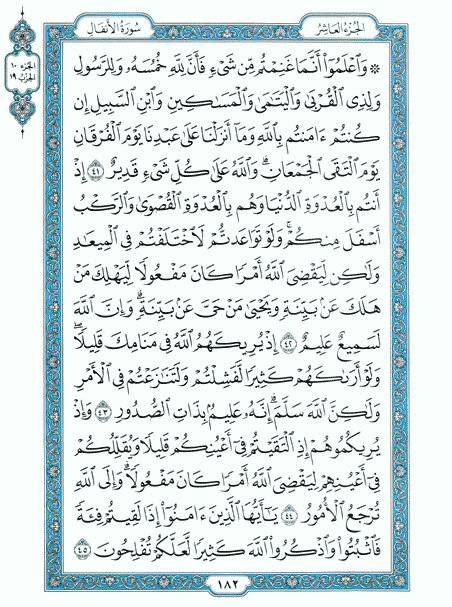 الجُزْءُ العَاشِرُ
سُورَةُ الأَنفَال
الجزء ١٠
الحزب ١٩
۞ وَٱعْلَمُوٓا۟ أَنَّمَا غَنِمْتُم مِّن شَىْءٍ فَأَنَّ لِلَّهِ خُمُسَهُۥ وَلِلرَّسُولِ
وَلِذِى ٱلْقُرْبَىٰ وَٱلْيَتَٰمَىٰ وَٱلْمَسَٰكِينِ وَٱبْنِ ٱلسَّبِيلِ إِن
كُنتُمْ ءَامَنتُم بِٱللَّهِ وَمَآ أَنزَلْنَا عَلَىٰ عَبْدِنَا يَوْمَ ٱلْفُرْقَانِ
يَوْمَ ٱلْتَقَى ٱلْجَمْعَانِ ۗ وَٱللَّهُ عَلَىٰ كُلِّ شَىْءٍ قَدِيرٌ ٤١ إِذْ
أَنتُم بِٱلْعُدْوَةِ ٱلدُّنْيَا وَهُم بِٱلْعُدْوَةِ ٱلْقُصْوَىٰ وَٱلرَّكْبُ
أَسْفَلَ مِنكُمْ ۚ وَلَوْ تَوَاعَدتُّمْ لَٱخْتَلَفْتُمْ فِى ٱلْمِيعَٰدِ
وَلَٰكِن لِّيَقْضِىَ ٱللَّهُ أَمْرًا كَانَ مَفْعُولًا لِّيَهْلِكَ مَنْ
هَلَكَ عَنۢ بَيِّنَةٍ وَيَحْيَىٰ مَنْ حَىَّ عَنۢ بَيِّنَةٍ ۗ وَإِنَّ ٱللَّهَ
لَسَمِيعٌ عَلِيمٌ ٤٢ إِذْ يُرِيكَهُمُ ٱللَّهُ فِى مَنَامِكَ قَلِيلًا ۖ
وَلَوْ أَرَىٰكَهُمْ كَثِيرًا لَّفَشِلْتُمْ وَلَتَنَٰزَعْتُمْ فِى ٱلْأَمْرِ
وَلَٰكِنَّ ٱللَّهَ سَلَّمَ ۗ إِنَّهُۥ عَلِيمٌۢ بِذَاتِ ٱلصُّدُورِ ٤٣ وَإِذْ
يُرِيكُمُوهُمْ إِذِ ٱلْتَقَيْتُمْ فِىٓ أَعْيُنِكُمْ قَلِيلًا وَيُقَلِّلُكُمْ
فِىٓ أَعْيُنِهِمْ لِيَقْضِىَ ٱللَّهُ أَمْرًا كَانَ مَفْعُولًا ۗ وَإِلَى ٱللَّهِ
تُرْجَعُ ٱلْأُمُورُ ٤٤ يَٰٓأَيُّهَا ٱلَّذِينَ ءَامَنُوٓا۟ إِذَا لَقِيتُمْ فِئَةً
فَٱثْبُتُوا۟ وَٱذْكُرُوا۟ ٱللَّهَ كَثِيرًا لَّعَلَّكُمْ تُفْلِحُونَ ٤٥
١٨٢